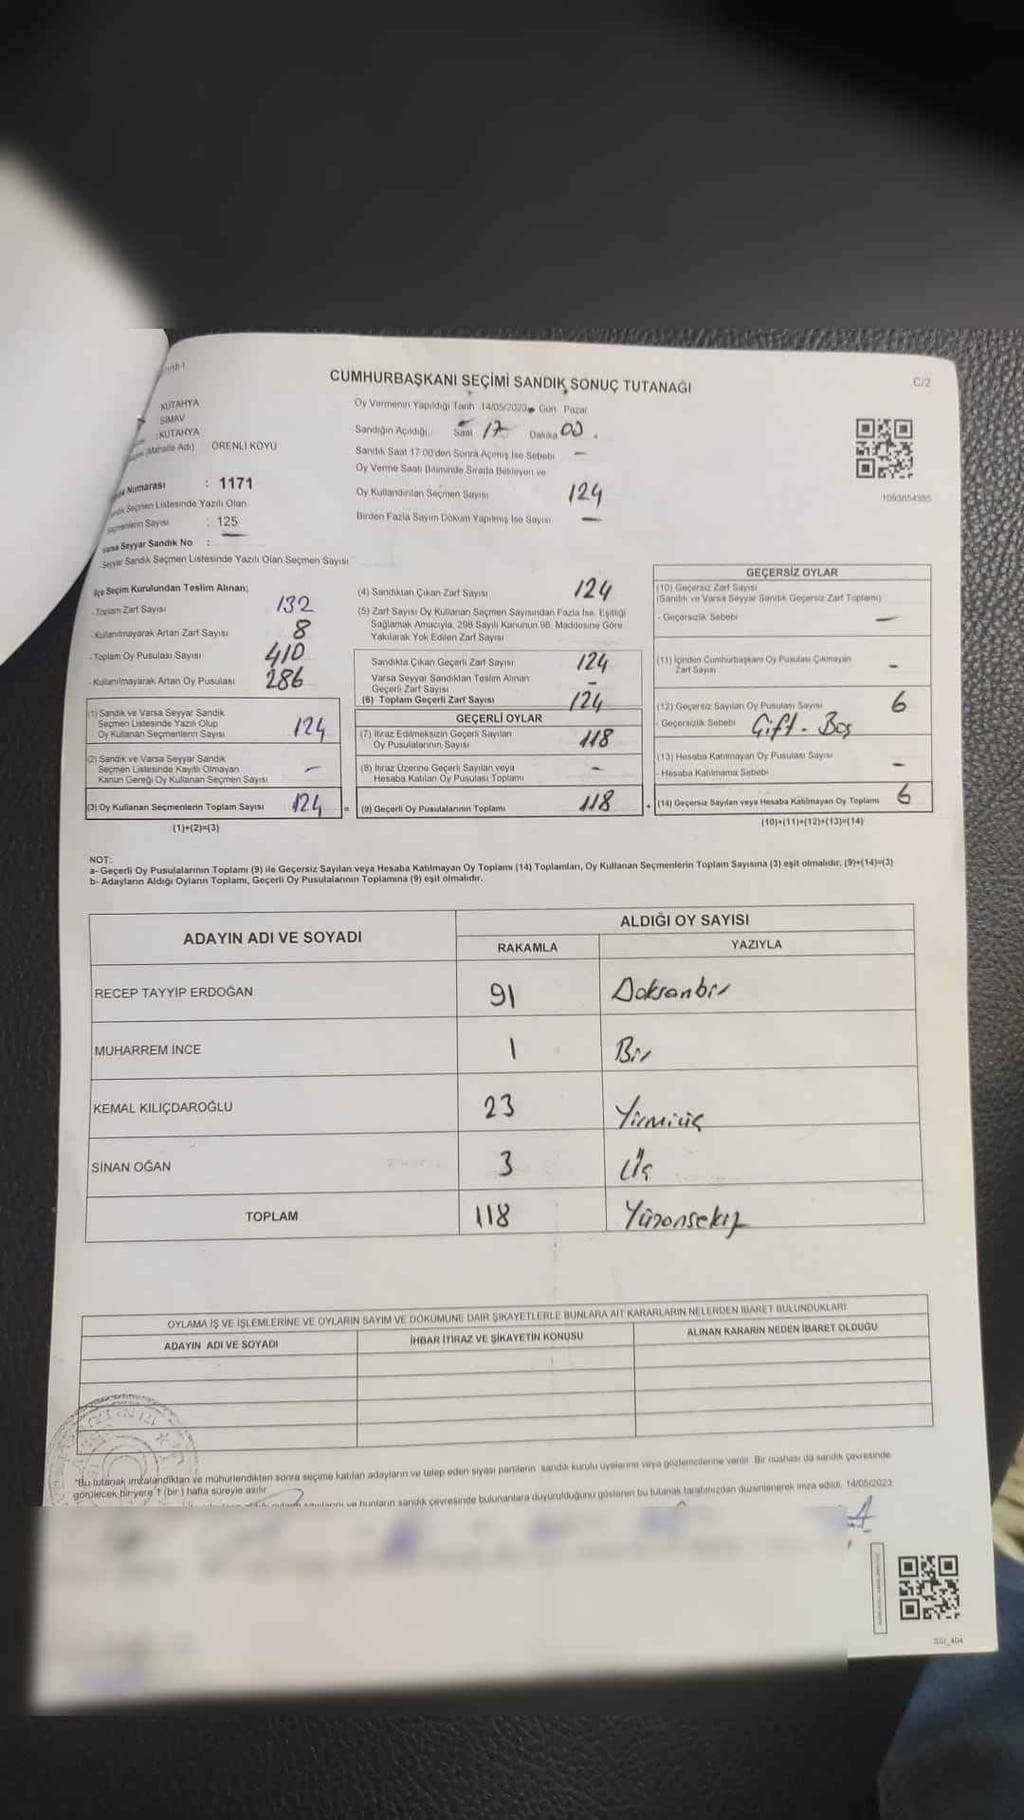 CUMHURBAŞKANI SEÇİMİ SANDIK SONUÇ TUTANAĞI
C/2
KÜTAHYA
SİMAV
:KÜTAHYA
(Mahalle Adı) ÖRENLİ KÖYÜ
Numarası : 1171
Seçmen Listesinde Yazılı Olan
Seçmenlerin Sayısı : 125
Varsa Seyyar Sandık No :
Seyyar Sandık Seçmen Listesinde Yazılı Olan Seçmen Sayısı
Oy Vermenin Yapıldığı Tarih 14/05/2023 Gün Pazar
Sandığın Açıldığı Saat 17 Dakika 00
Sandık Saat 17:00'den Sonra Açılmış İse Sebebi -
Oy Verme Saati Bitiminde Sırada Bekleyen ve
Oy Kullandırılan Seçmen Sayısı 124
Birden Fazla Sayım Döküm Yapılmış İse Sayısı -
1093854385
İlçe Seçim Kurulundan Teslim Alınan;
- Toplam Zarf Sayısı 132
- Kullanılmayarak Artan Zarf Sayısı 8
- Toplam Oy Pusulası Sayısı 410
- Kullanılmayarak Artan Oy Pusulası 286
(1) Sandık ve Varsa Seyyar Sandık
Seçmen Listesinde Yazılı Olup
Oy Kullanan Seçmenlerin Sayısı 124
(2) Sandık ve Varsa Seyyar Sandık
Seçmen Listesinde Kayıtlı Olmayan
Kanun Gereği Oy Kullanan Seçmen Sayısı -
(3) Oy Kullanan Seçmenlerin Toplam Sayısı 124 =
(1)+(2)=(3)
(4) Sandıktan Çıkan Zarf Sayısı 124
(5) Zarf Sayısı Oy Kullanan Seçmen Sayısından Fazla İse, Eşitliği
Sağlamak Amacıyla, 298 Sayılı Kanunun 98. Maddesine Göre
Yakılarak Yok Edilen Zarf Sayısı
Sandıkta Çıkan Geçerli Zarf Sayısı 124
Varsa Seyyar Sandıktan Teslim Alınan
Geçerli Zarf Sayısı -
(6) Toplam Geçerli Zarf Sayısı 124
GEÇERLİ OYLAR
(7) İtiraz Edilmeksizin Geçerli Sayılan
Oy Pusulalarının Sayısı 118
(8) İtiraz Üzerine Geçerli Sayılan veya
Hesaba Katılan Oy Pusulası Toplamı -
(9) Geçerli Oy Pusulalarının Toplamı 118 +
GEÇERSİZ OYLAR
(10) Geçersiz Zarf Sayısı
(Sandık ve Varsa Seyyar Sandık Geçersiz Zarf Toplamı)
- Geçersizlik Sebebi -
(11) İçinden Cumhurbaşkanı Oy Pusulası Çıkmayan
Zarf Sayısı -
(12) Geçersiz Sayılan Oy Pusulası Sayısı 6
- Geçersizlik Sebebi Çift - Boş
(13) Hesaba Katılmayan Oy Pusulası Sayısı -
- Hesaba Katılmama Sebebi
(14) Geçersiz Sayılan veya Hesaba Katılmayan Oy Toplamı 6
(10)+(11)+(12)+(13)=(14)
NOT:
a- Geçerli Oy Pusulalarının Toplamı (9) ile Geçersiz Sayılan veya Hesaba Katılmayan Oy Toplamı (14) Toplamları, Oy Kullanan Seçmenlerin Toplam Sayısına (3) eşit olmalıdır. (9)+(14)=(3)
b- Adayların Aldığı Oyların Toplamı, Geçerli Oy Pusulalarının Toplamına (9) eşit olmalıdır.
ADAYIN ADI VE SOYADI
ALDIĞI OY SAYISI
RAKAMLA YAZIYLA
RECEP TAYYİP ERDOĞAN 91 Doksanbir
MUHARREM İNCE 1 Bir
KEMAL KILIÇDAROĞLU 23 Yirmiüç
SİNAN OĞAN 3 Üç
TOPLAM 118 Yüzonsekiz
OYLAMA İŞ VE İŞLEMLERİNE VE OYLARIN SAYIM VE DÖKÜMÜNE DAİR ŞİKAYETLERLE BUNLARA AİT KARARLARIN NELERDEN İBARET BULUNDUKLARI
ADAYIN ADI VE SOYADI İHBAR İTİRAZ VE ŞİKAYETİN KONUSU ALINAN KARARIN NEDEN İBARET OLDUĞU
*Bu tutanak imzalandıktan ve mühürlendikten sonra seçime katılan adayların ve talep eden siyasi partilerin sandık kurulu üyelerine veya gözlemcilerine verilir. Bir nüshası da sandık çevresinde
görülecek bir yere 1 (bir) hafta süreyle asılır.
ve bunların sandık çevresinde bulunanlara duyurulduğunu gösteren bu tutanak tarafımızdan düzenlenerek imza edildi. 14/05/2023
SSI_404